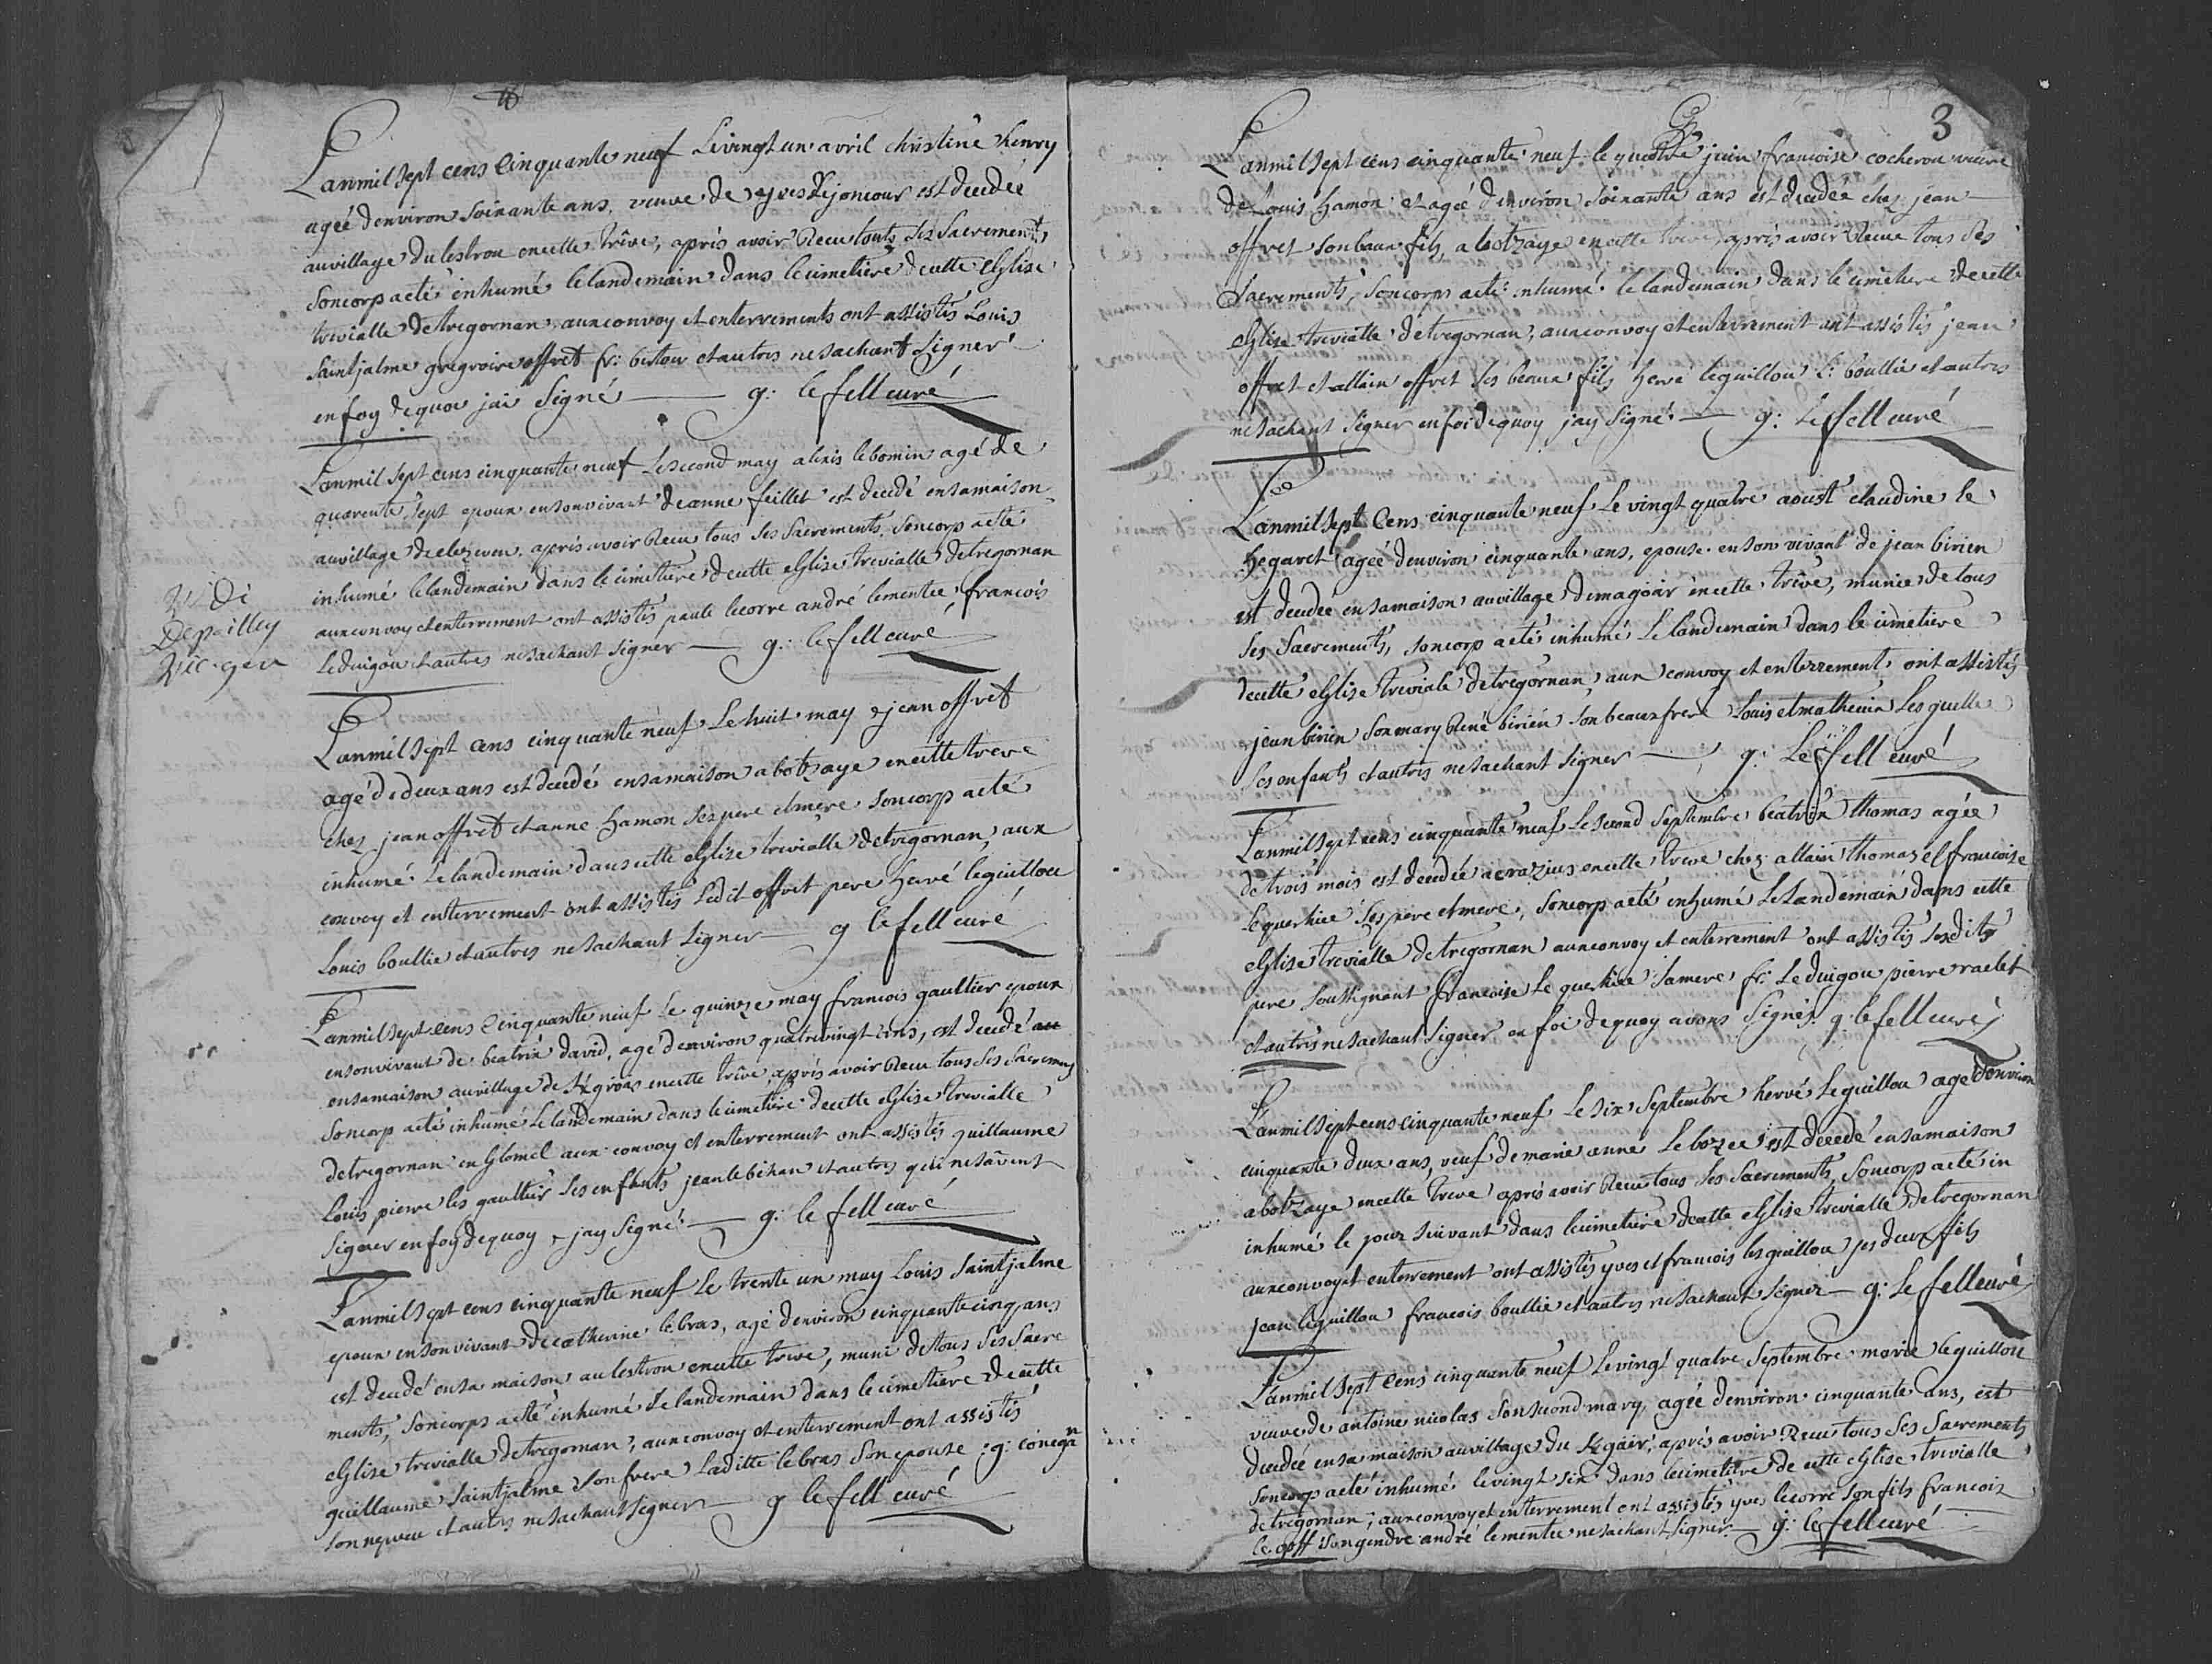 Lanmil sept cens Cinquante neuf Le vingt un avril christine henry
ageé denviron soixante ans, veuve de yves Lejoncour est decedeé
au village du lestrou en cette trêve, aprés avoir Receu touts ses Sacrements
son corp a eté inhumé le landemain dans le cimetiere de cette eglise
treviàlle de tregornan, aux convoy et enterrements ont assistés Louis
Saint jalme gregroire offret fr: bertou et autres ne sachant signer
en foy de quoi jai Signé g: le fell curé
Lanmil sept cens cinquante neuf Le second may alexis le bomin agé de
quarente sept epoux en son vivant de anne feillet est decedé en sa maison
au village de aprés avoir Receu tous ses Sacrements son corp a eté
inhumé le landemain dans le cimetiere de cette eglise treviàlle de tregornan
aux convoy et enterrement ont assistés paule le corre andré lementec, francois
Le duigou et autres ne sachant signer g: le fell curé
Vidi
Depailley
vic. gen
Lanmil sept cens cinquante neuf Le huit may jean offret
agé de deux ans est decedé en sa maison a botzaye en cette treve
chez jean offret et anne hamon ses pere et mere son corp a eté
inhumé Le landemain dans cette eglise treviàlle de tregornan, aux
convoy et enterrement ont assistés Ledit offret pere hervé leguillou
Louis boullie et autres ne sachant signer g le fell curé
Lanmil sept cens Cinquante neuf Le quinze may francois gaultier epoux
en son vivant de beatrix david, age denviron quatrevingt ans, est decedé
en sa maison au village de K/groas en cette trêve, aprés avoir Receu tous ses Sacremens
son corp a eté inhumé Le landemain dans le cimetiere de cette eglise treviàlle
de tregornan en glomel aux convoy et enterrement ont assistés guillaume
Louis pierre les gaultier ses enfants jean le bihan et autres qui ne sàvent
signer en foy de quoy jay signé g: le fell curé
Lanmil sept cens cinquante neuf Le trente un may Louis Saint jalme
epoux en son vivant de catherine le bras, agé denviron cinquante cinq ans
est decedé en sa maison au lestrou en cette treve, muni de tous ses Sacre
ments, son corps a eté inhumé Le landemain dans le cimetiere de cette
eglise treviàlle de tregornan, aux convoy et enterrement ont assistés
guillaume Saint jalme son frere Laditte le bras son epouse g: conegn
son neveu et autres ne sachant signer g le fell curé
3
Lanmil sept cens cinquante neuf le quatre juin francoise cocherou veuve
de Louis hamon et ageé denviron soixante ans est decedeé chez jean
offret son beau fils, a botzaye en cette treve, aprés avoir Receue tous ses
Sacrements, son corps a eté inhumé le landemain dans le cimetiere de cette
eglise treviàlle de tregornan, aux convoy et enterrement ont assistés jean
offret et allain offret ses beaux fils hervé leguillou L: boullie et autres
ne sachant signer en foi de quoy jay signé g: le fell curé
Lanmil sept Cens cinquante neuf Le vingt quatre aoust claudine le
hegaret ageé denviron cinquante ans, epouse en son vivant de jean birien
est decedeé en sa maison au village de magoar en cette trêve, munie de tous
ses Sacrements, son corp a eté inhumé Le landemain dans le cimetiere
de cette eglise treviale de tregornan, aux convoy et enterrement ont assistés
jean birien son mary René birién son beaux frere Louis et mathevin Les guelle
ses enfants et autres ne sachant signer g: Le fell curé
Lanmil sept cens cinquante neuf Le second septembre beatrix thomas agée
de trois mois est decedeé a crazius en cette treve chez allain thomas et francoise
Le querhice ses pere et mere, son corp a eté inhumé Le Landemain dans cette
eglise treviàlle de tregornan aux convoy et enterrement ont assistés Lesdits
pere soussignant francoise Le querhice sa mere fr: Le duigou pierre raclet
et autres ne sachant signer en foi de quoy avons signés g: le fell curé
Lanmil sept cens cinquante neuf Le six Septembre hervé Le guillou agé d'environ
cinquante deux ans, veuf de marie anne Le bozec est decedé en sa maison
a botzaye en cette treve aprés avoir Receu tous ses Sacrements, son corp a eté in
inhumé le jour suivant dans le cimetiere de cette eglise treviàlle de tregornan
aux convoy et enterrement ont assistés yves et francois les guillou ses deux fils
jean le guillou francois boullie et autres ne sachant signer g: le fell curé
Lanmil sept Cens cinquante neuf Le vingt quatre Septembre marie le guillou
veuve de antoine nicolas son second mary, agée denviron cinquante ans, est
decedeé en sa maison au village du K/gaér, aprés avoir Receu tous ses Sacrements
son corp a eté inhumé le vingt six dans le cimetiere de cette eglise treviàlle
de tregornan, aux convoy et enterrement ont assistés yves le corre son fils francois
Le goff son gendre andré lementec ne sachant signer g: le fell curé